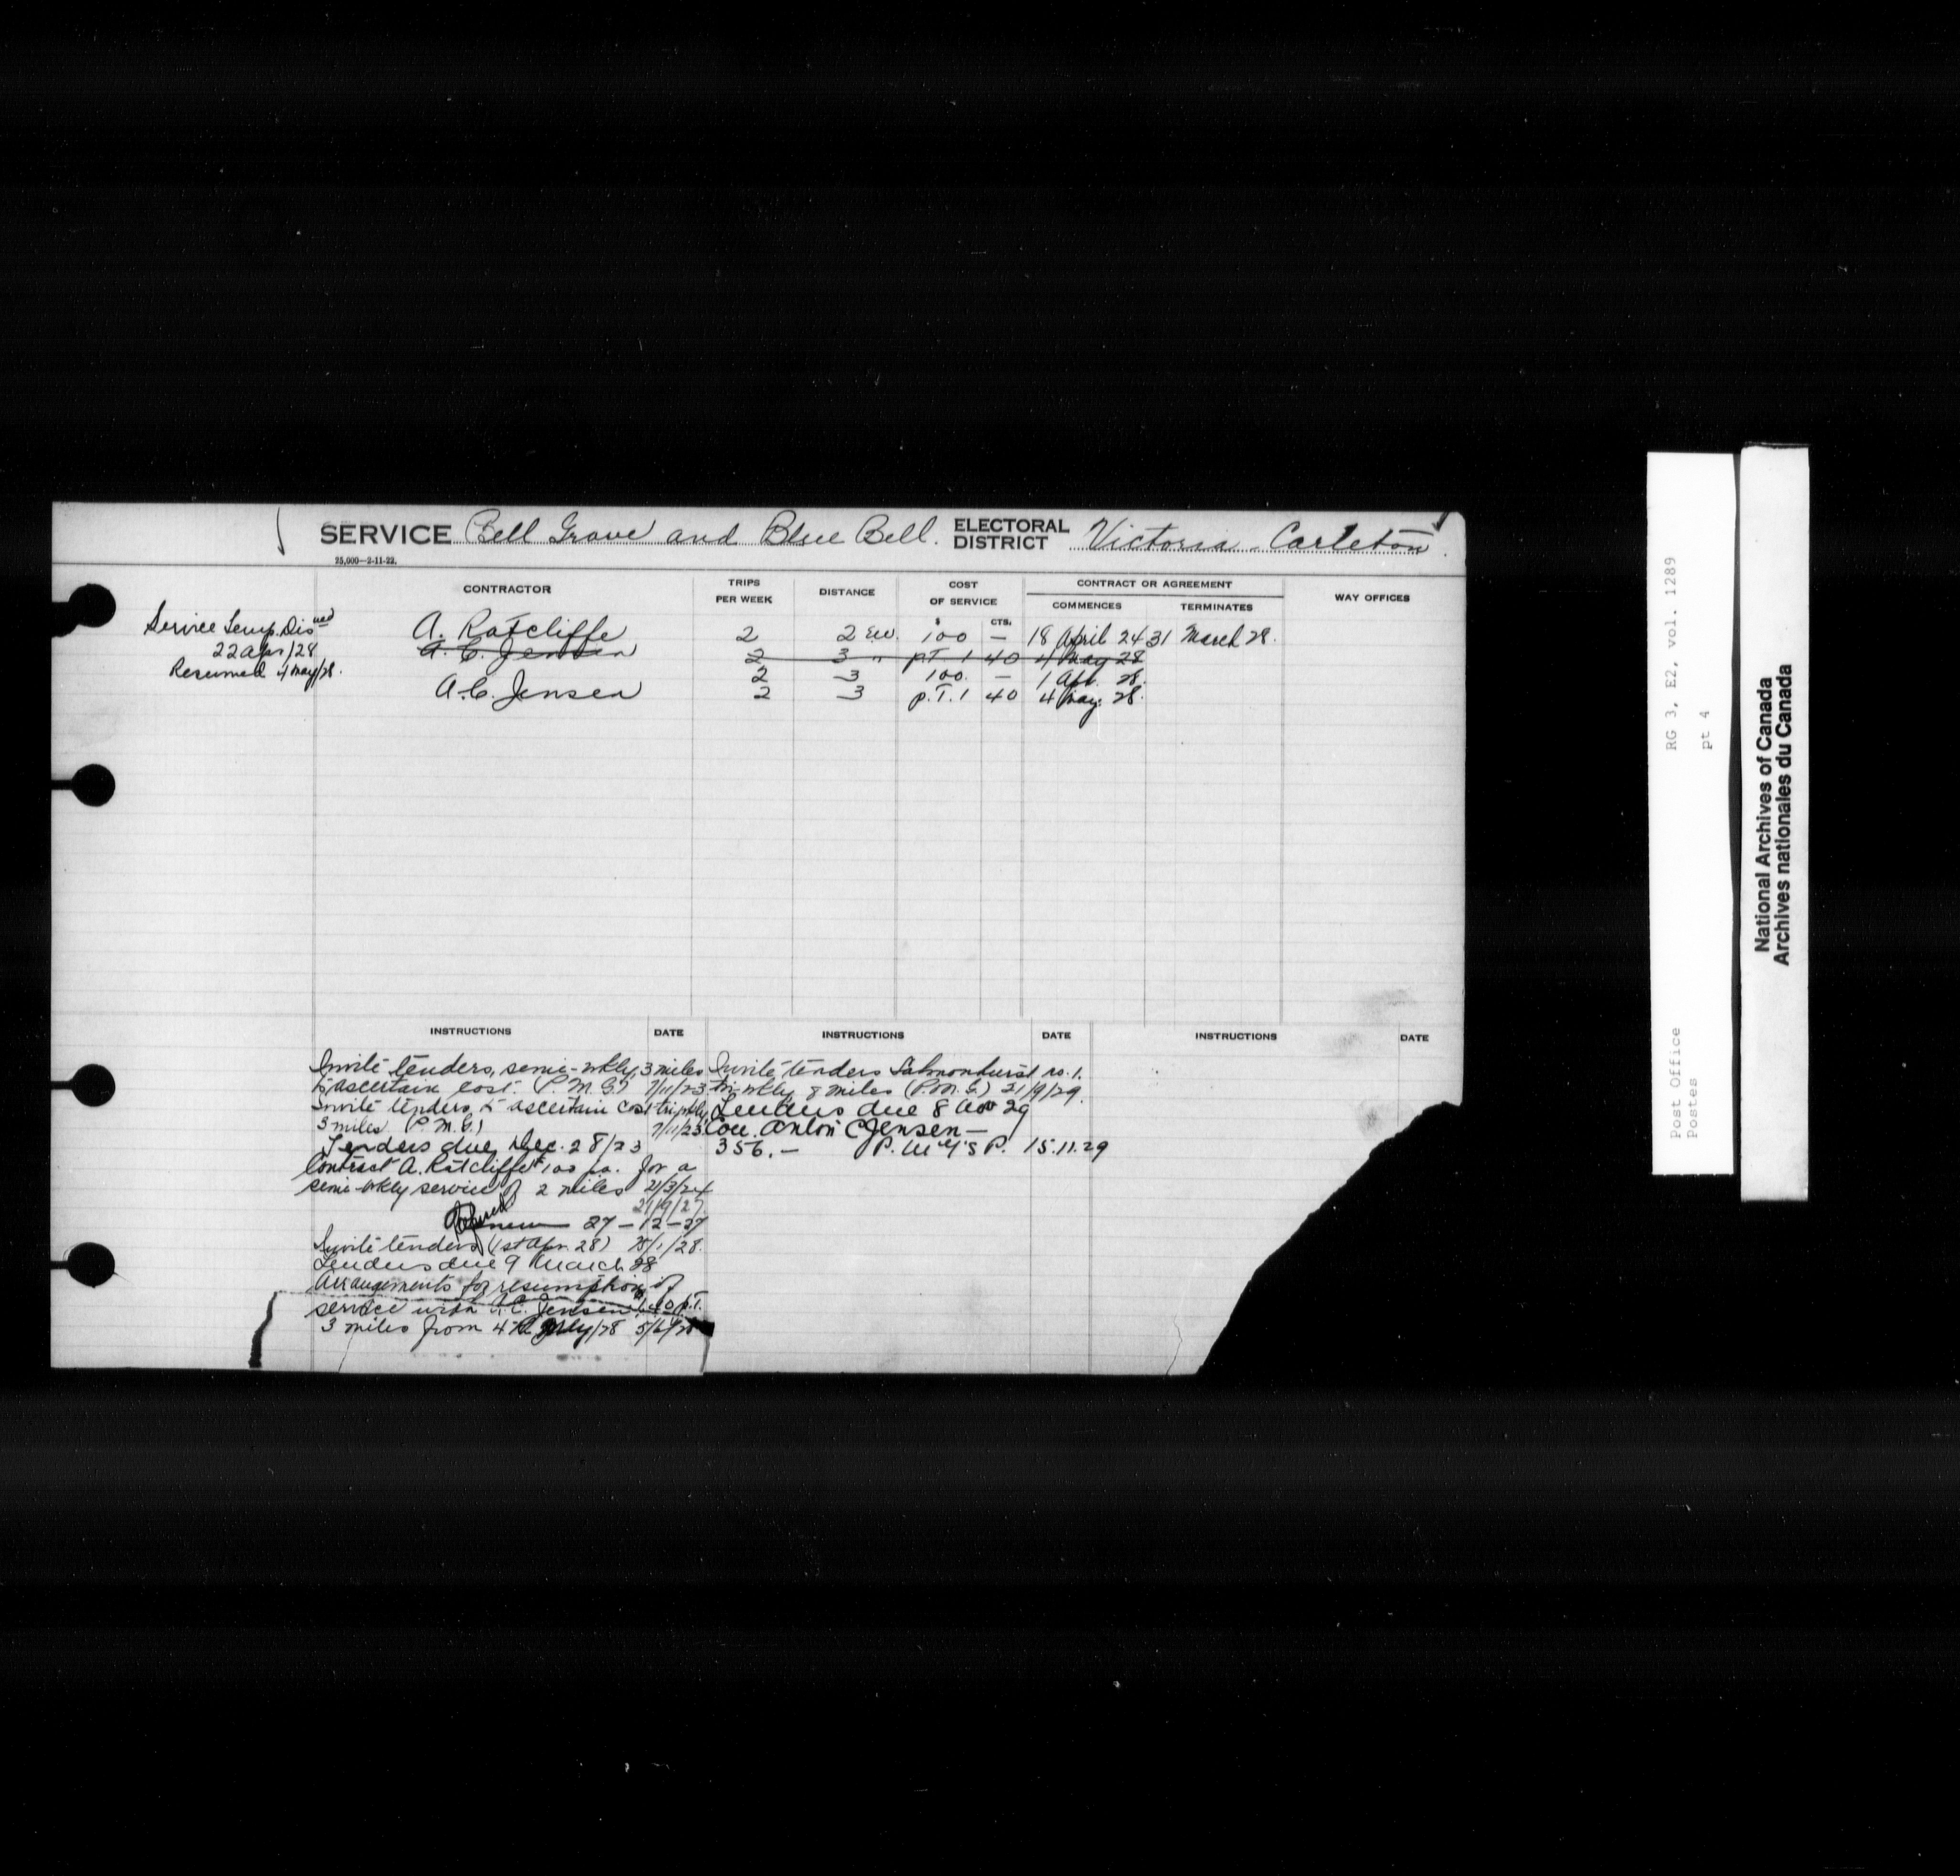 SERVICE Bell Grove and Blue Bell. ELECTORAL DISTRICT Victoria - Carleton.
25,000—2-11-22.
CONTRACTOR TRIPS PER WEEK DISTANCE COST OF SERVICE CONTRACT OR AGREEMENT WAY OFFICES
$ CTS. COMMENCES TERMINATES
Service Temp. Disned
22 apr/28
Resumed 4 May/28.
A. Ratcliffe 2 2 100 — 18 April 24 31 March 28.
A. C. Jensen 2 3 " p.T. 1 40 4 May 28
2 3 100. — 1 Apl. 28.
A.C. Jensen 2 3 p.T. 1 40 4 May. 28.
INSTRUCTIONS DATE
Invite tenders, semi-wkly, 3 miles
to ascertain cost. (P.M.G.) 7/11/23
Invite tenders to ascertain cost tri-wkly,
3 miles (P.M.G.) 7/11/23
Tenders due Dec. 28/23
Contract A. Ratcliffe $100 pa. for a
semi-wkly service of 2 miles 21/3/24
21/9/27.
27-12-27
Invite tenders (1st Apr. 28) 25/1/28.
Tenders due 9 March 28
Arrangements for resumption of
service with A.C. Jensen 1.40 p.T.
3 miles from 4th July/28 5/6/28
INSTRUCTIONS DATE
Invite tenders Salmonhurst rs. 1.
tri-wkly 8 miles (P.M.G.) 21/9/29.
Tenders due 8 Nov 29
Con. Anton C Jensen —
356.— 15.11.29
INSTRUCTIONS DATE
RG 3, E2, vol. 1289
pt 4
Post Office
Postes
National Archives of Canada
Archives nationales du Canada